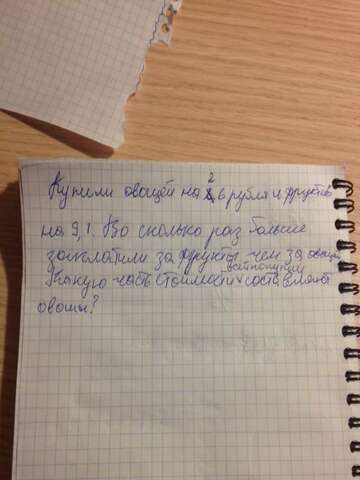 Купили овощей на 2,6 рубля и фруктов
на 9,1. Во сколько раз больше
заплатили за фрукты чем за овощи
Какую часть стоимости всей покупки составляют
овощи?